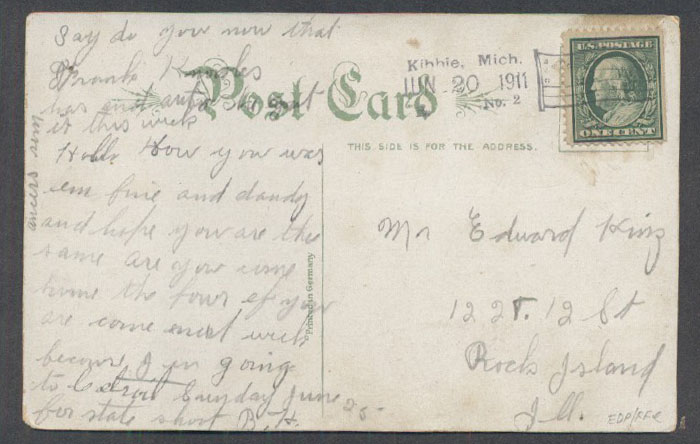 Say do you now that
Frank
has
it this week
Hello How you was
em fine and dandy
and hope you are the
same are you come
home the four of you
are come next week
becous I in going
to Detroit Sunday June 25-
for state shoot B. H.
Post Card
THIS SIDE IS FOR THE ADDRESS.
Kibbie, Mich.
JUN 20 1911
No. 2
U.S. POSTAGE
ONE CENT
Mr Edward King
122 . 12 St
Rock Island
Ill.
Printed in Germany